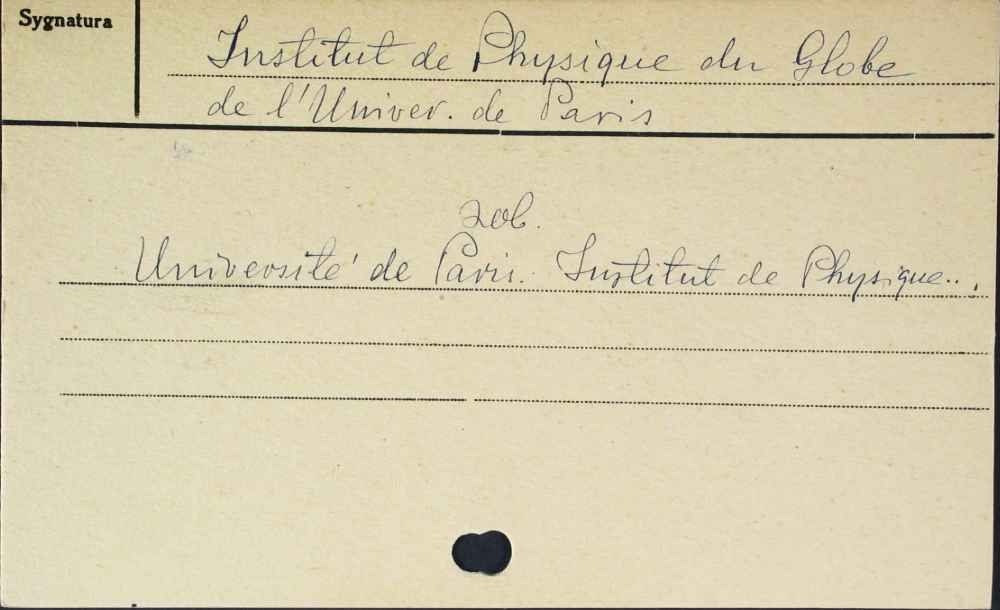 Sygnatura
Institut de Physique du Globe
de l'Univer. de Paris
zob.
Université de Paris. Institut de Physique...